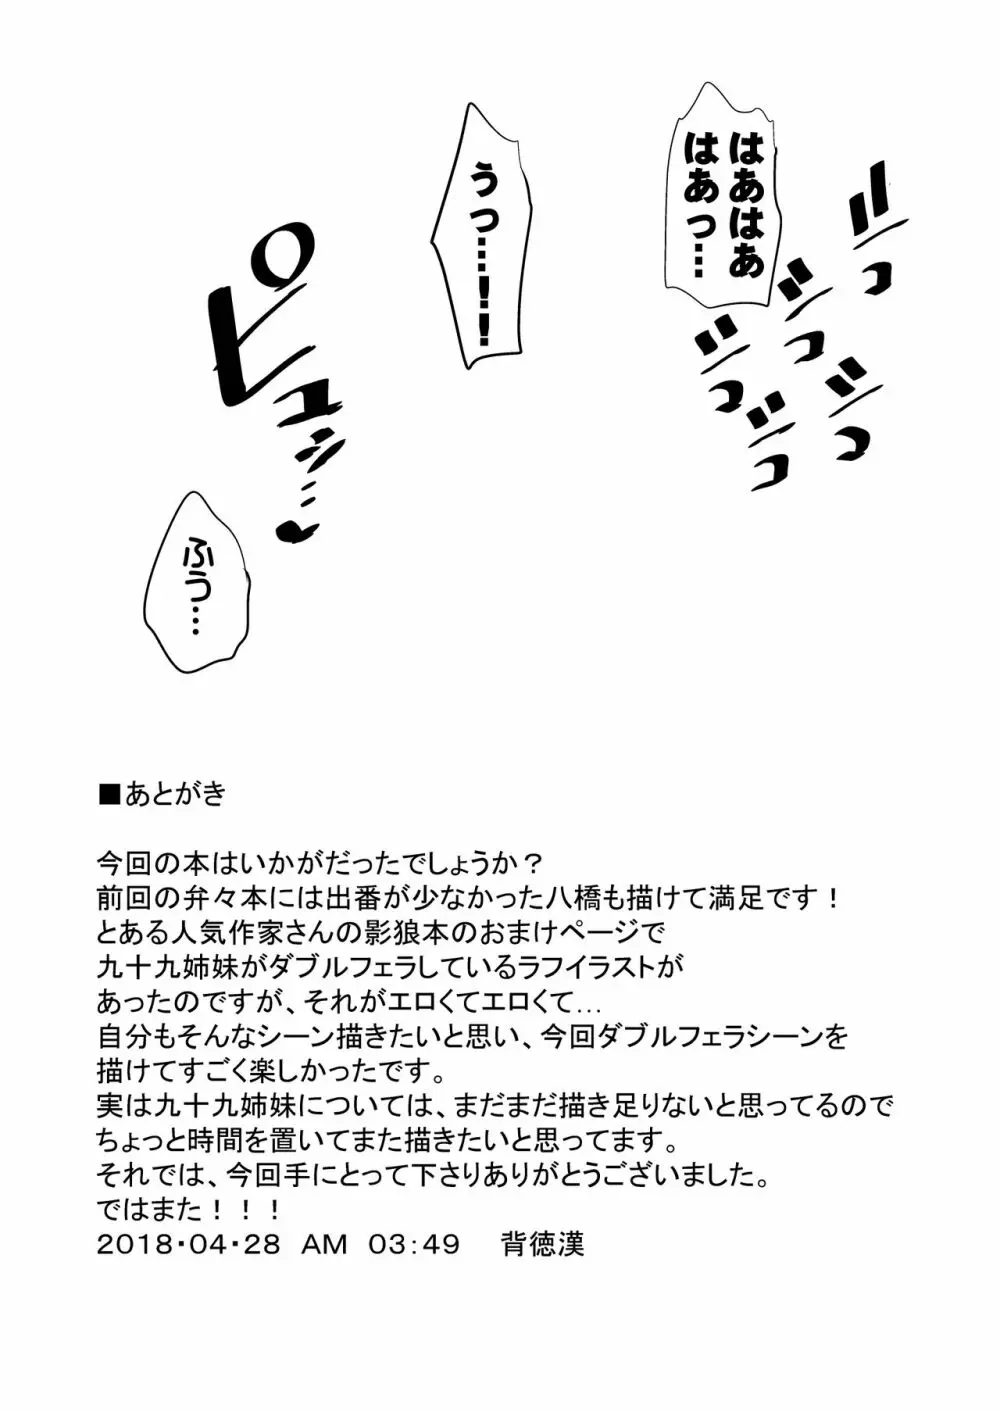 はあはあ
はあっ…
ジっ
ジっ
ジっ
ジっ
ジっ
うっ…!!
ピュッ…♥
ふぅ…
■あとがき
今回の本はいかがだったでしょうか？
前回の弁々本には出番が少なかった八橋も描けて満足です！
とある人気作家さんの影狼本のおまけページで
九十九姉妹がダブルフェラしているラフイラストが
あったのですが、それがエロくてエロくて…
自分もそんなシーン描きたいと思い、今回ダブルフェラシーンを
描けてすごく楽しかったです。
実は九十九姉妹については、まだまだ描き足りないと思ってるので
ちょっと時間を置いてまた描きたいと思ってます。
それでは、今回手にとって下さりありがとうございました。
ではまた！！！
2018・04・28　AM　03：49　背徳漢